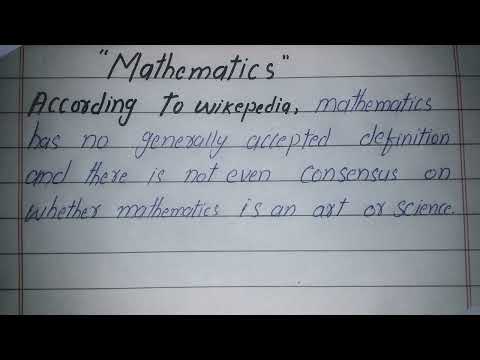 "Mathematics"
According To wikepedia, mathematics
has no generally accepted definition
and there is not even consensus on
whether mathematics is an art or science.